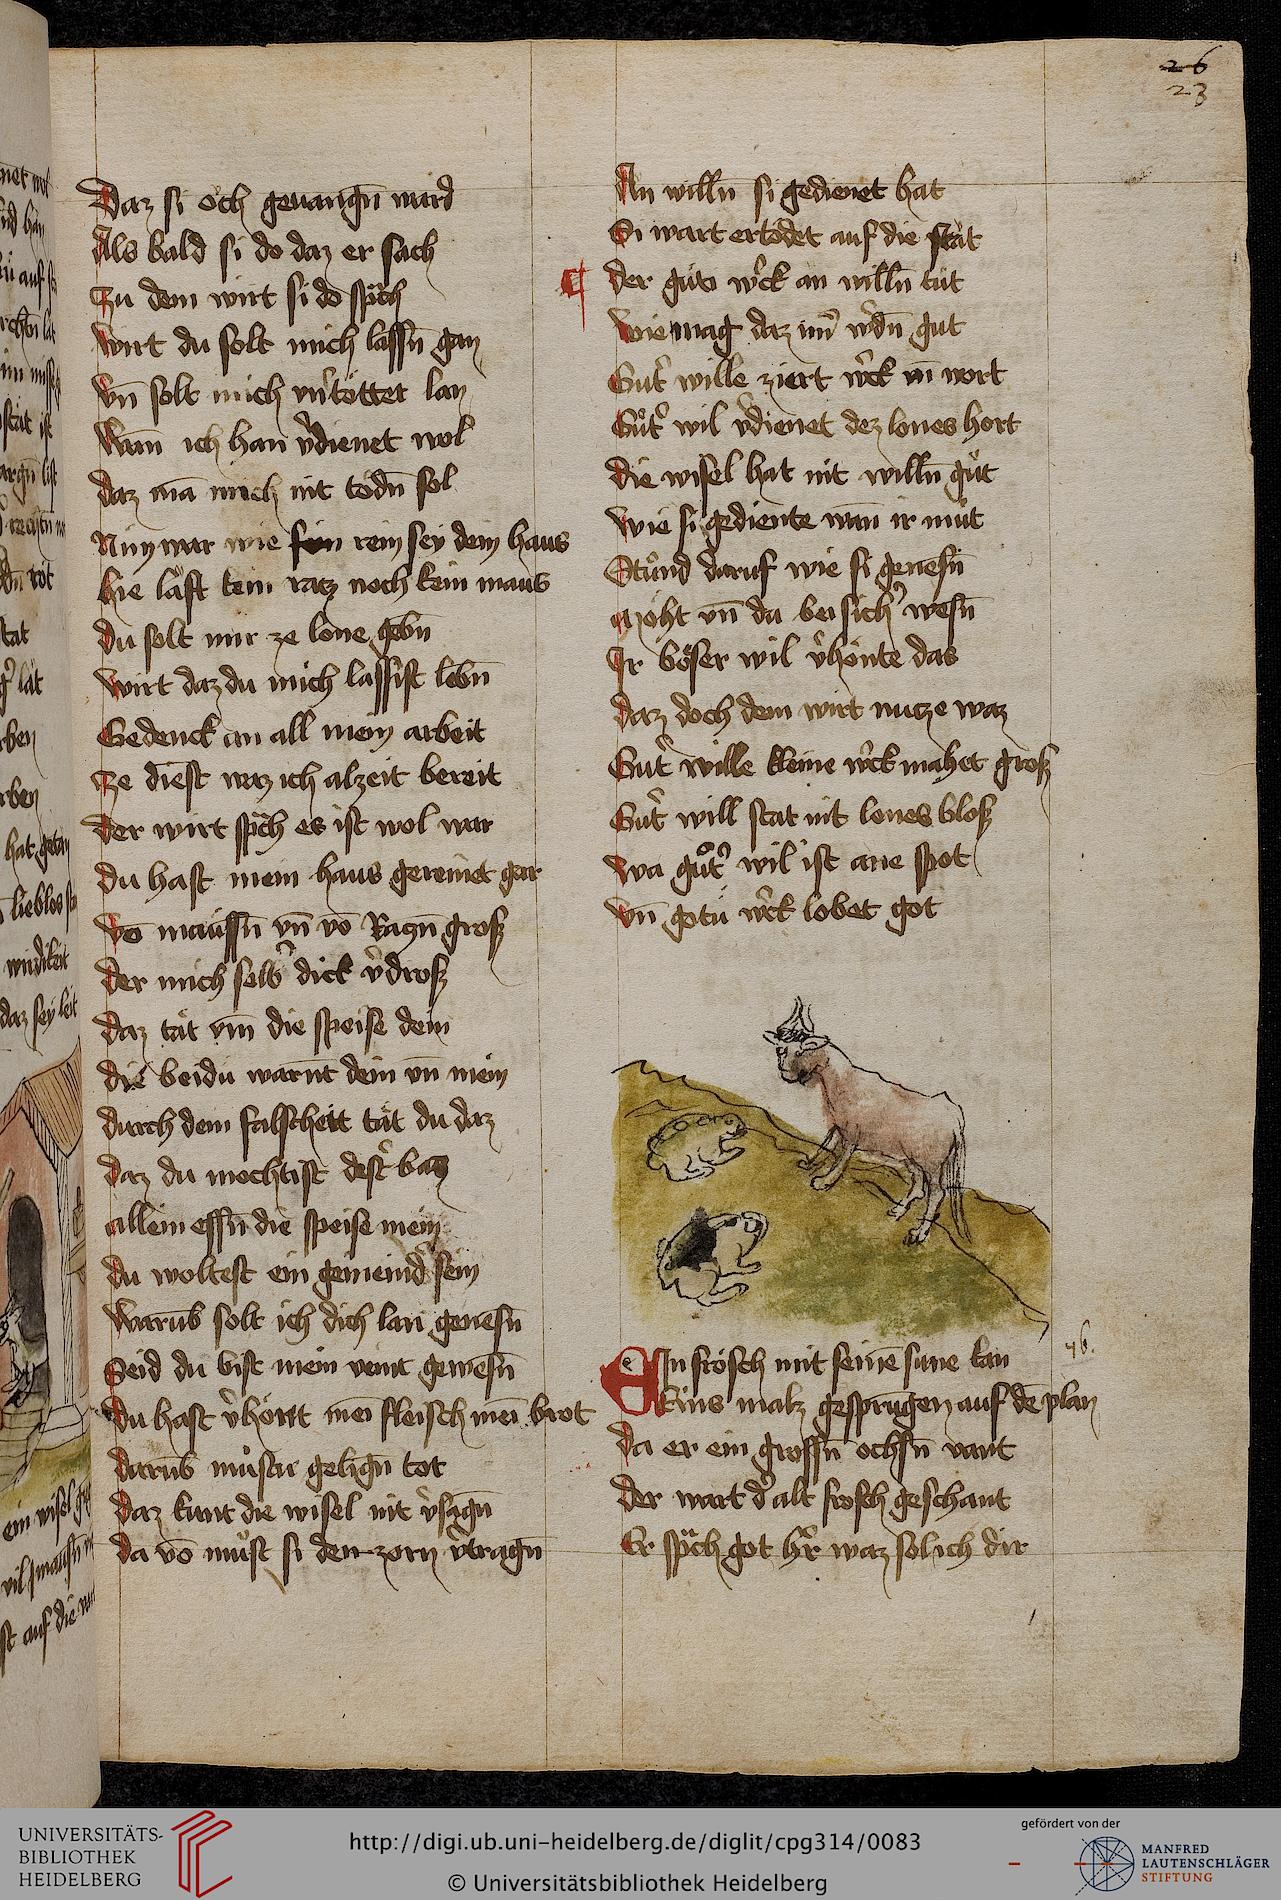 26
23
Daz si och geuangn̄ ward
Als bald si do daz er sach
Zu dem wirt si do sp̄ch
Wirt du solt mich lassn̄ gan
vn̄ solt mich vn̓töttet lan
Wan̄ ich han v̓dienet wol
daz mā mich nit tödn̄ sol
Nim war wie rein sey dein haus
hie lăft kein ratz noch kein maus
du solt mir ze lone gebn̄
wirt daz du mich lassist lebn̄
Gedenck an all mein arbeit
Ze dienst waz ich alzeit bereit
der wirt sp̄ch es ist wol war
du hast mein haus gereinet gar
vō mäussn̄ vn̄ vō Razn̄ groß
der mich selb̓ dick v̓droß
daz tät vm̄ die speise dein
die beidu warnt dein vn̄ mein
durch dein falscheit tät du daz
daz du möchtist dest̓ baz
allein essn̄ die speise mein
du woltest ein gemeind̓ sein
warūb solt ich dich lan genesn̄
Seid du bist mein veint gewesn̄
du hast v̓hönt mei fleisch mei brot
darūb můstu gelign̄ tot
daz kunt die wisel nit v̓sagn̄
da vō můst si den zorn v̓tragn̄
An willn̄ si gedienet hat
Si wart ertödet auf die stat
der gůtı w̓ck an willn̄ tůt
wie mag daz im̄ w̓dn̄ gut
Gut̓ wille ziert w̓ck vn̄ wort
Gůt̓ wil v̓dienet dez lones hort
die wisel hat nit willn̄ gůt
wie si gediente wan̄ ir můt
Stůnd daruf wie si genesn̄
möht vn̄ da bei sich̓ wesn̄
Ir böser wil v̓hönte das
daz doch dem wirt nutze waz
Gut̓ wille kleine w̓ck mahet groß
Gut̓ will stat nit lones bloß
wa gůt̓ wil ist ane spot
vn̄ gotu w̓ck lobet got
46.
Ein frösch mit seinē sune kan
Eins malz gesprūgen auf dē plan
da er ein grossn̄ ochsn̄ vant
der wart d̓ alt frosch geschant
Er sp̄ch got h̓r waz sol ich dir
UNIVERSITÄTS-
BIBLIOTHEK
HEIDELBERG
http://digi.ub.uni-heidelberg.de/diglit/cpg314/0083
© Universitätsbibliothek Heidelberg
gefördert von der
MANFRED
LAUTENSCHLÄGER
STIFTUNG